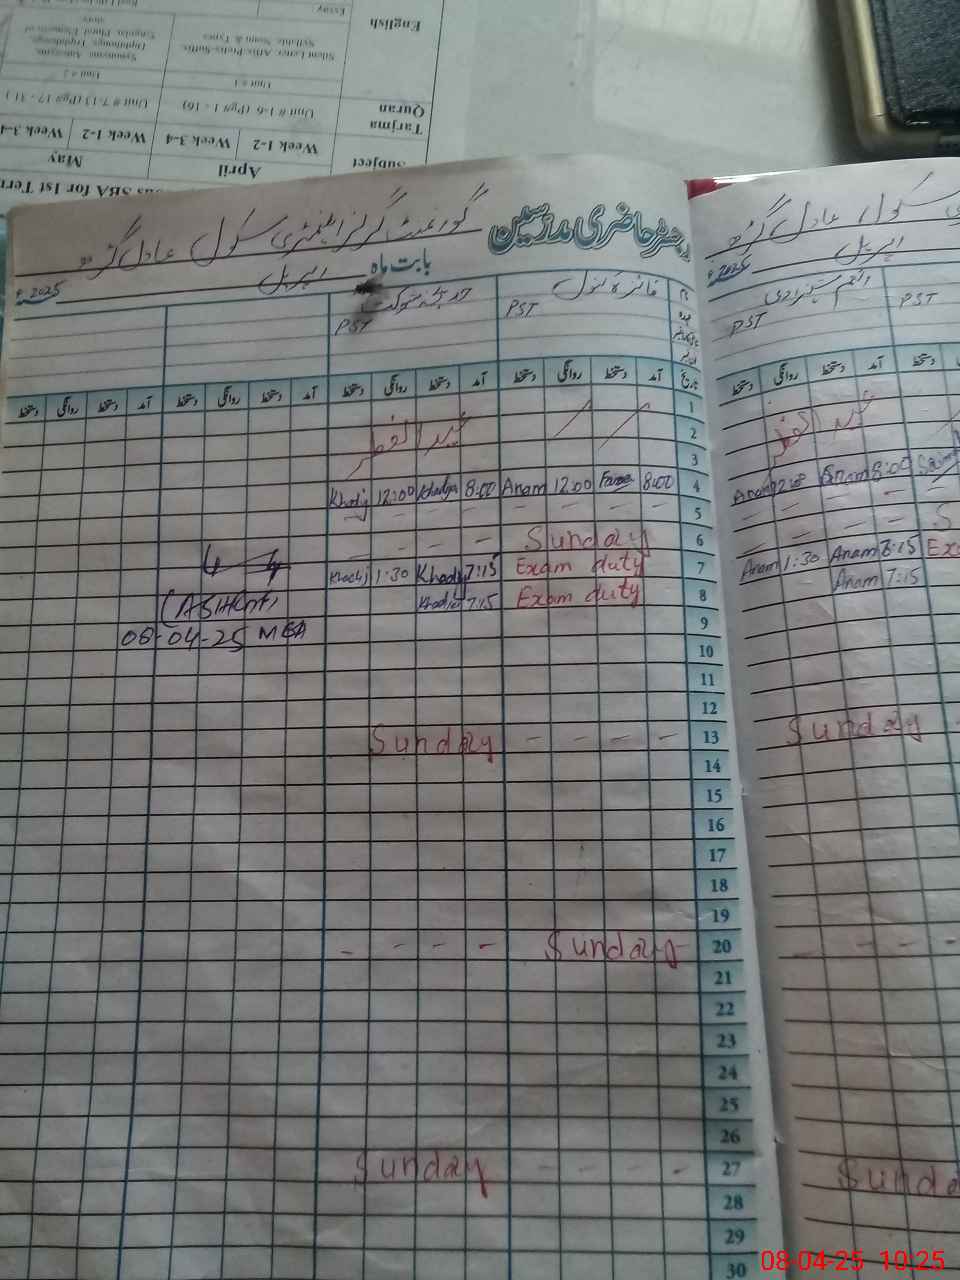 English
Essay
Silent Letter, Affix, Prefix, Suffix, Syllable, Noun & Types
Synonyms, Antonyms, Diphthongs, Triphthongs, Singular, Plural
Unit # 1
Unit # 2
Tarjma Quran
Unit # 1-6 (Pg# 1 - 16)
Unit # 7-13 (Pg# 17 - 31)
Week 1-2 Week 3-4 Week 1-2 Week 3-4
Subject April May
SBA for 1st Term
رجسٹر حاضری مدرسین گورنمنٹ گرلز ایلیمنٹری سکول عادل گڑھ
بابت ماہ اپریل 2025ء
نام فائزہ بتول
عہدہ PST PST
تاریخ آمد دستخط روانگی دستخط آمد دستخط روانگی دستخط آمد دستخط روانگی دستخط آمد دستخط روانگی دستخط
1
2 عید الفطر
3
4 8:00 12:00 Anam 8:00 Khadija 12:00 Khadij
5
6 Sunday
7 Exam duty 7:15 Khadij 1:30 Khadij
8 Exam duty 7:15 Khadija
9
08-04-25 MEA
10
11
12
13 Sunday
14
15
16
17
18
19
20 Sunday
21
22
23
24
25
26
27 Sunday
28
29
30
سکول عادل گڑھ
اپریل 2025ء
PST PST
دستخط روانگی دستخط آمد دستخط
عید الفطر
Anam 8:00
Anam 1:30 Anam 7:15
Anam 7:15
Sunday
Sunday
08-04-25 10:25